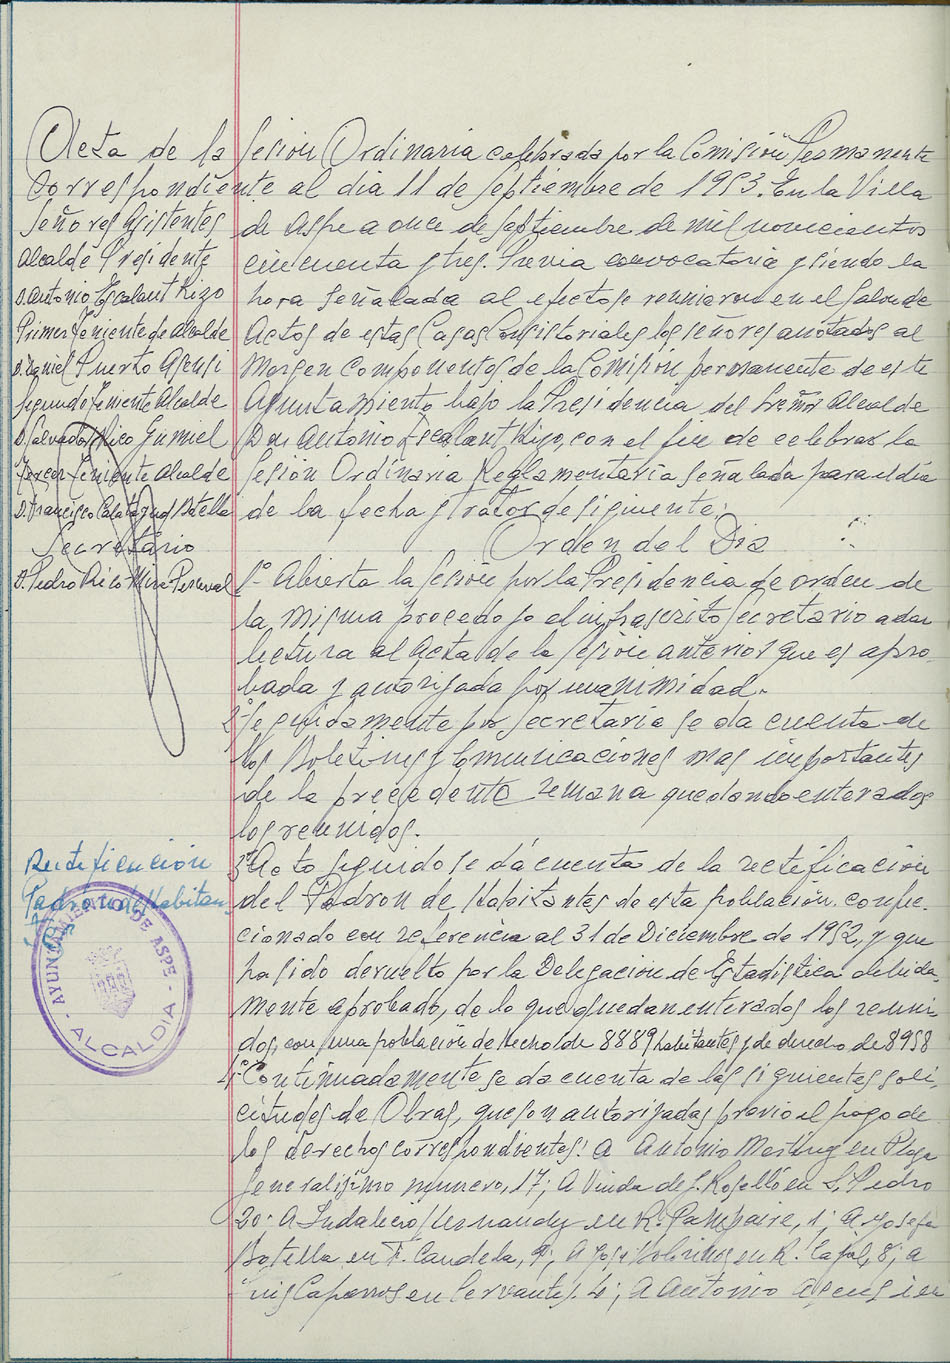 Acta de la Sesion Ordinaria celebrada por la Comisión Permanente
Correspondiente al dia 11 de Septiembre de 1953. En la Villa
Señores Asistentes
Alcalde Presidente
D. Antonio Escalant Rizo
Primer Teniente de Alcalde
D. Daniel Puerto Asensi
Segundo Teniente Alcalde
D. Salvador Rico Gumiel
Tercer Teniente Alcalde
D. Francisco Calatayud Botella
Secretario
D. Pedro Rico Mira-Perceval
de Aspe a once de Septiembre de mil novecientos
cincuenta y tres. Previa convocatoria y siendo la
hora señalada al efecto se reunieron en el Salon de
Actos de estas Casas Consistoriales los señores anotados al
Margen componentes de la Comisión permanente de este
Ayuntamiento, bajo la Presidencia del Señor Alcalde
Don Antonio Escalant Rizo, con el fin de celebrar la
Sesión Ordinaria Reglamentaria señalada para el dia
de la fecha y tratar de siguiente:
Orden del Dia
1º Abierta la Sesión por la Presidencia de orden de
la misma procedo yo el infrascrito Secretario a dar
lectura al Acta de la Sesión anterior que es apro-
bada y autorizada por unanimidad.
2º Seguidamente por Secretaria se da cuenta de
los Boletines y Comunicaciones mas importantes
de la precedente semana quedando enterados
los reunidos.
Rectificación
Padron de Habitan
3º Acto seguido se dá cuenta de la rectificación
del Padron de Habitantes de esta población confec-
cionado con referencia al 31 de Diciembre de 1952, y que
ha sido devuelto por la Delegación de Estadistica debida-
mente aprobado, de lo que quedan enterados los reuni-
dos, con una población de Hecho de 8889 habitantes y de derecho de 8958
AYUNTAMIENTO DE ASPE - ALCALDIA -
4º Continuadamente se da cuenta de las siguientes soli-
citudes de Obras, que son autorizadas previo el pago de
los derechos correspondientes: A Antonio Martinez en Plaza
Generalisimo numero, 17; A Viuda de J. Roselló en S. Pedro
20; A Indalecio Hernandez en R. 1; A Josefa
Botella en F. Candela, 9; A Jose en R. 8; a
Luis Caparros en Cervantes. 4; A Antonio Asensi en